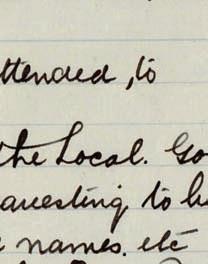 ttended, to
the Local. Go
questing to h
names. etc